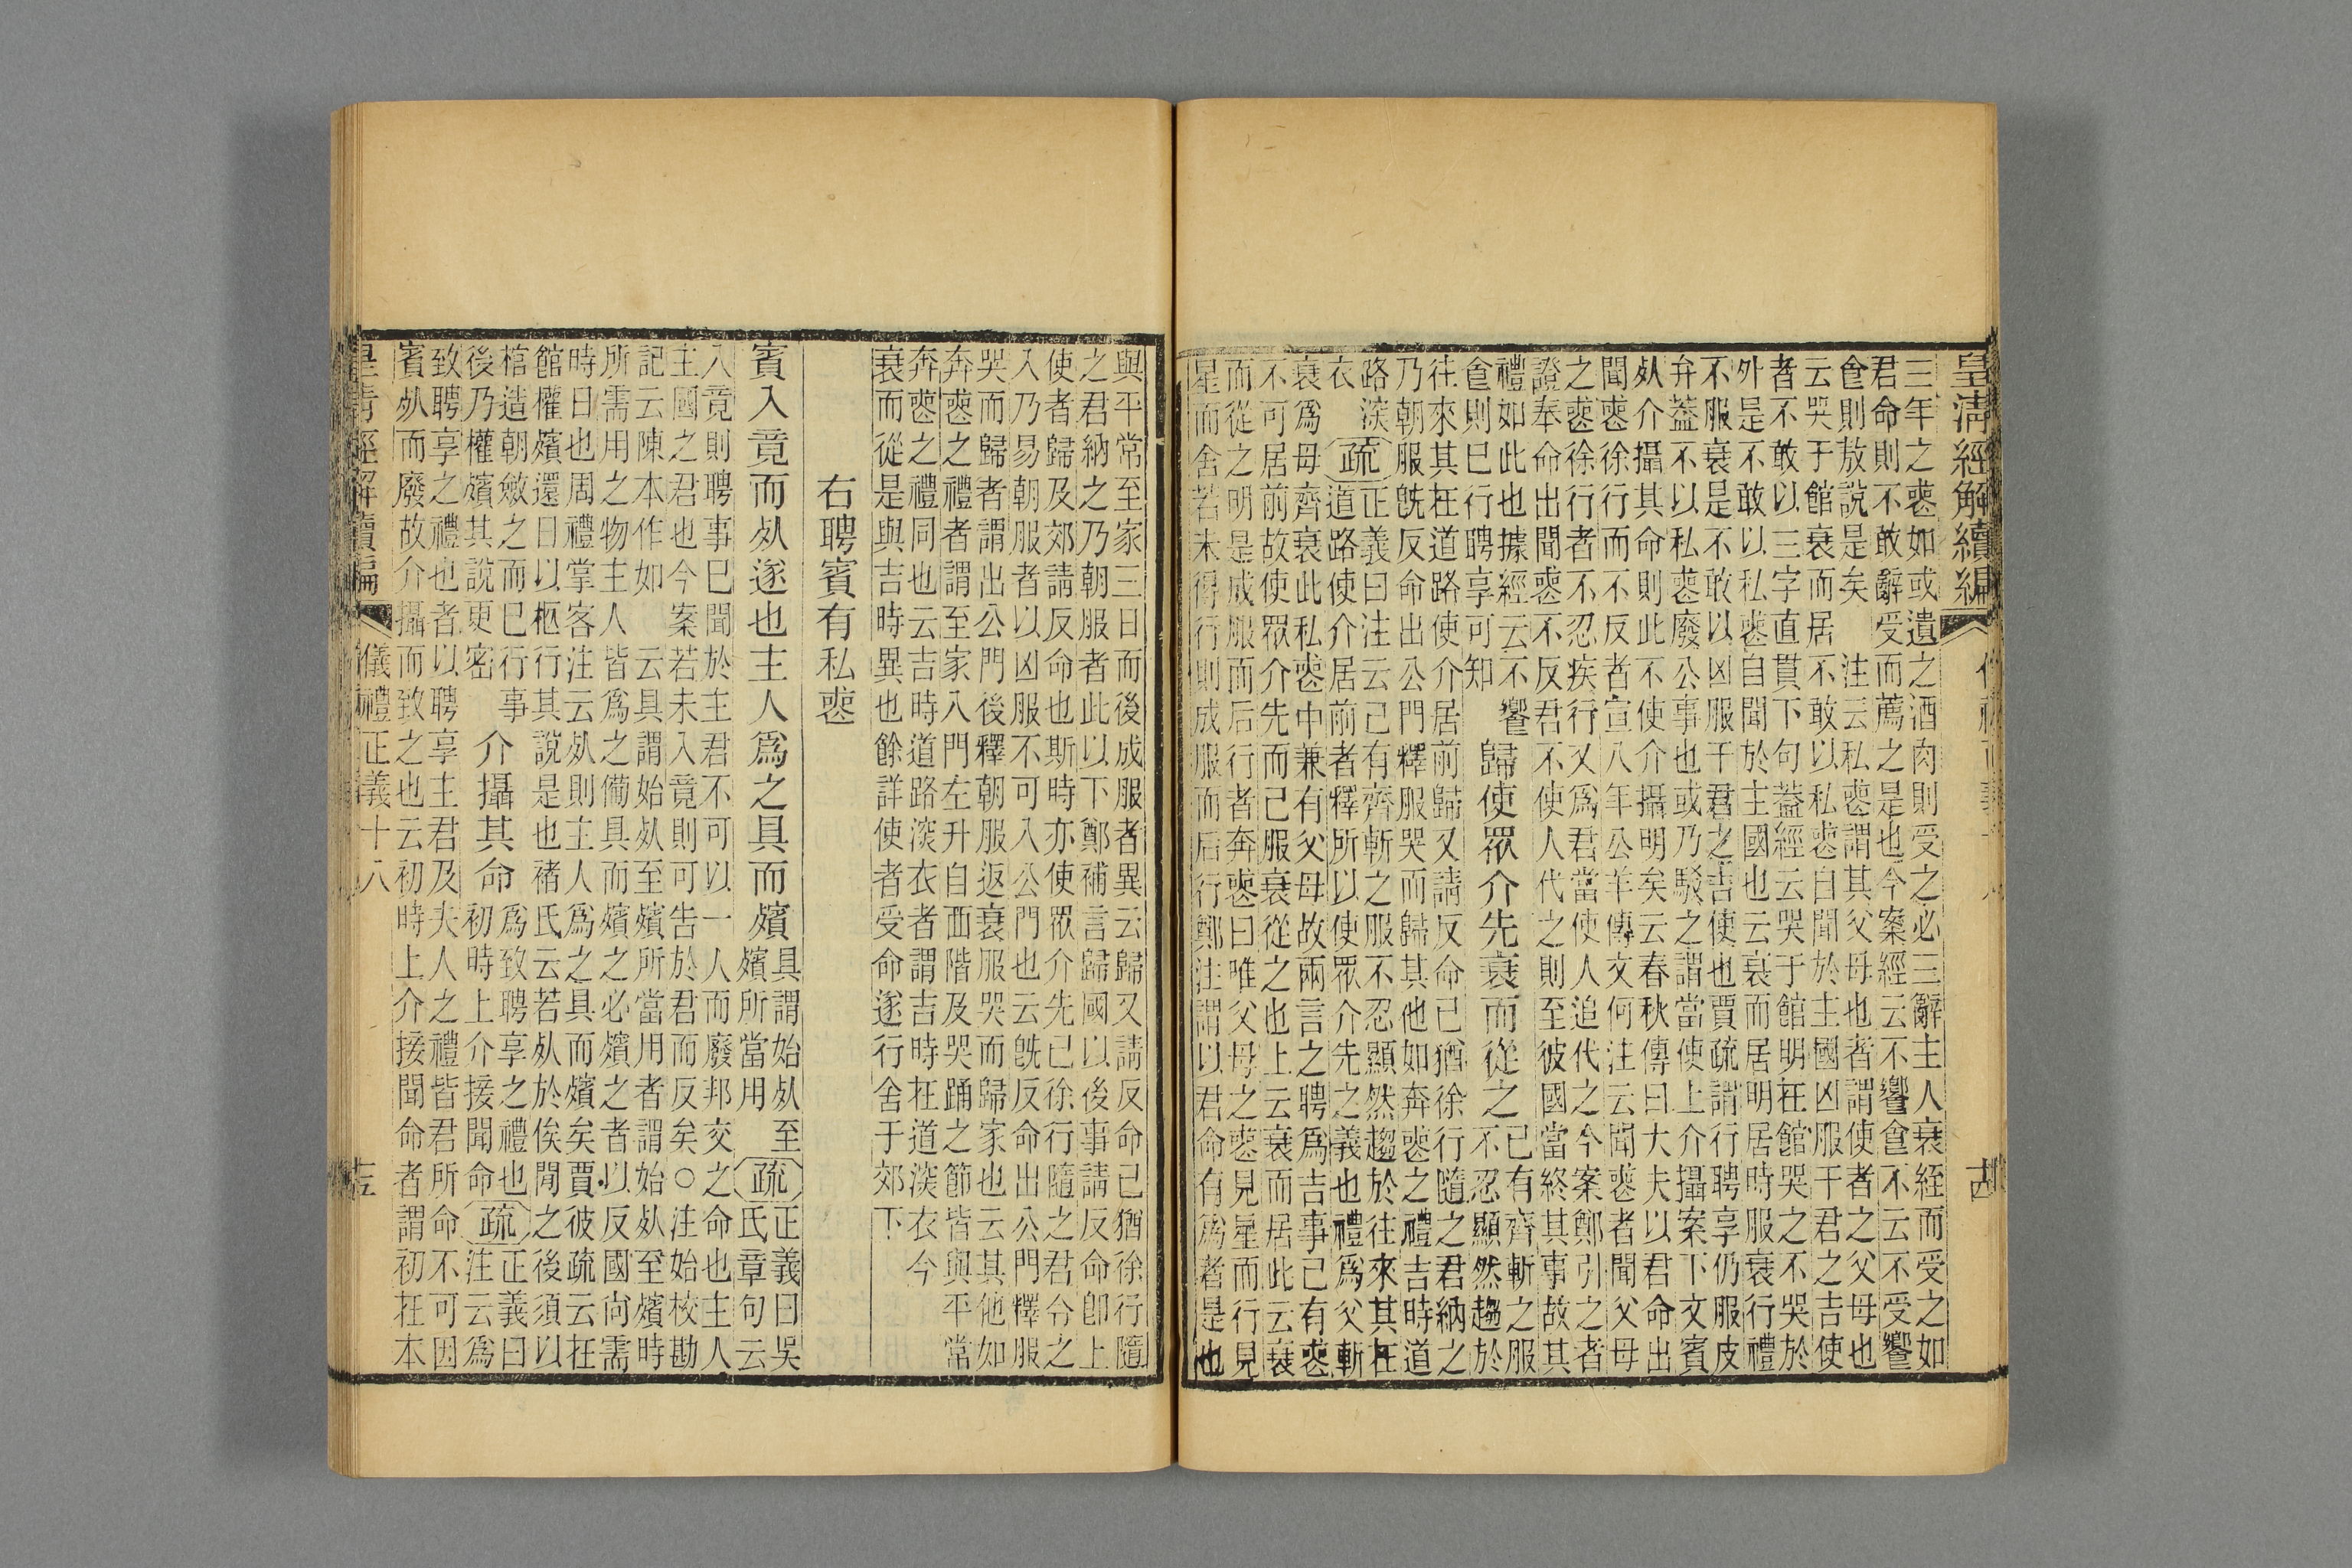 皇清經解續編
三年之喪如或遺之酒肉則受之必三辭主人衰絰而受之如
君命則不敢辭受而薦之是也今案經云不饗食不云不受饗
食則敖說是矣　注云私喪謂其父母也者謂使者之父母也
云哭于館衰而居不敢以私喪自聞於主國凶服干君之吉使
者不敢以三字直貫下句蓋經云哭于館明在館哭之不哭於
外是不敢以私喪自聞於主國也云衰而居明居時服衰行禮
不服衰是不敢以凶服干君之吉使也賈疏謂行聘享仍服皮
弁蓋不以私喪廢公事也或乃駁之謂當使上介攝案下文賓
死介攝其命則此不使介攝明矣云春秋傳曰大夫以君命出
聞喪徐行而不反者宣八年公羊傳文何注云聞喪者聞父母
之喪徐行者不忍疾行又爲君當使人追代之今案鄭引之者
證奉命出聞喪不反君不使人代之則至彼國當終其事故其
禮如此也據經云不饗
食則巳行聘享可知
歸使眾介先衰而從之
己有齊斬之服
不忍顯然趨於
往來其在道路使介居前歸又請反命己猶徐行隨之君納之
乃朝服旣反命出公門釋服哭而歸其他如奔喪之禮吉時道
路深
衣
疏
正義曰注云己有齊斬之服不忍顯然趨於往來其在
道路使介居前者釋所以使眾介先之義也禮爲父斬
衰爲母齊衰此私喪中兼有父母故兩言之聘爲吉事己有喪
不可居前故使眾介先而己服衰從之也上云衰而居此云衰
而從之明是成服而后行者奔喪曰唯父母之喪見星而行見
星而舍若未得行則成服而后行鄭注謂以君命有爲者是也
與平常至家三日而後成服者異云歸又請反命己猶徐行隨
之君納之乃朝服者此以下鄭補言歸國以後事請反命卽上
使者歸及郊請反命也斯時亦使眾介先己徐行隨之君令之
入乃易朝服者以凶服不可入公門也云旣反命出公門釋服
哭而歸者謂出公門後釋朝服返衰服哭而歸家也云其他如
奔喪之禮者謂至家入門左升自西階及哭踊之節皆與平常
奔喪之禮同也云吉時道路深衣者謂吉時在道深衣今
衰而從是與吉時異也餘詳使者受命遂行舍于郊下
右聘賓有私喪
賓入竟而死遂也主人爲之具而殯
具謂始死至
殯所當用
疏
正義曰吳
氏章句云
入竟則聘事巳聞於主君不可以一人而廢邦交之命也主人
主國之君也今案若未入竟則可告於君而反矣○注始校勘
記云陳本作如　云具謂始死至殯所當用者謂始死至殯時
所需用之物主人皆爲之備具而殯之必殯之者以反國向需
時日也周禮掌客注云死則主人爲之具而殯矣賈彼疏云在
館權殯還日以柩行其說是也褚氏云若死於俟閒之後須以
棺造朝斂之而巳行事
後乃權殯其說更密
介攝其命
爲致聘享之禮也
初時上介接聞命
疏
正義曰
注云爲
致聘享之禮也者以聘享主君及夫人之禮皆君所命不可因
賓死而廢故介攝而致之也云初時上介接聞命者謂初在本
皇清經解續編
儀禮正義十八